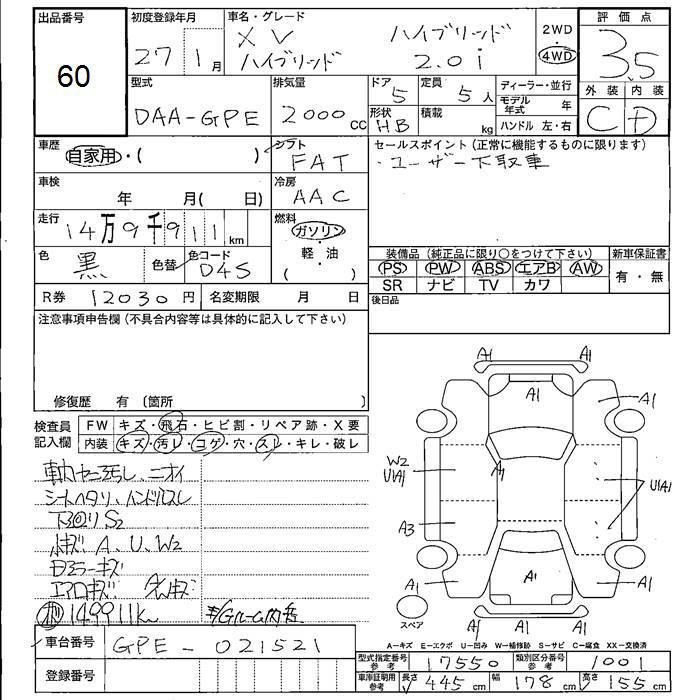 出品番号
60
初度登録年月
27 1月
車名・グレード
XV ハイブリッド
ハイブリッド 2.0i
2WD
4WD
評価点
3.5
外装 内装
C D
型式
DAA-GPE
排気量
2000cc
ドア 5
形状 HB
定員 5人
積載 kg
ディーラー・並行
モデル年式 年
ハンドル 左・右
車歴
自家用・( )
シフト
FAT
セールスポイント (正常に機能するものに限ります)
・ユーザー下取車
車検
年 月( 日)
冷房
AAC
走行
14万9千911km
燃料
ガソリン
・
軽・油
( )
色
黒
色替
色コード
D4S
装備品 (純正品に限り○をつけて下さい)
新車保証書
PS PW ABS エアB AW
SR ナビ TV カワ
有・無
R券 12030円
名変期限 月 日
後日品
注意事項申告欄 (不具合内容等は具体的に記入して下さい)
修復歴 有 〔箇所 〕
検査員記入欄
FW キズ・飛石・ヒビ割・リペア跡・X要
内装 キズ・汚レ・コゲ・穴・スレ・キレ・破レ
車内ヤニ汚し、ニオイ
シートヘタリ、ハンドルスレ
下回りS2
キズ A、U、W2
ドアミラーキズ
エアロキズ
149911km
車台番号 GPE-021521
登録番号
A1 A1
A1
A1 A1
W2
U1A1
A1
U1A1
A3
A1
A1
A1
A1 A1
スペア
A-キズ E-エクボ U-凹み W-補修跡 S-サビ C-腐食 XX-交換済
型式指定番号参考 17550
類別区分番号参考 1001
車庫証明用参考 長さ 445cm 幅 178cm 高さ 155cm